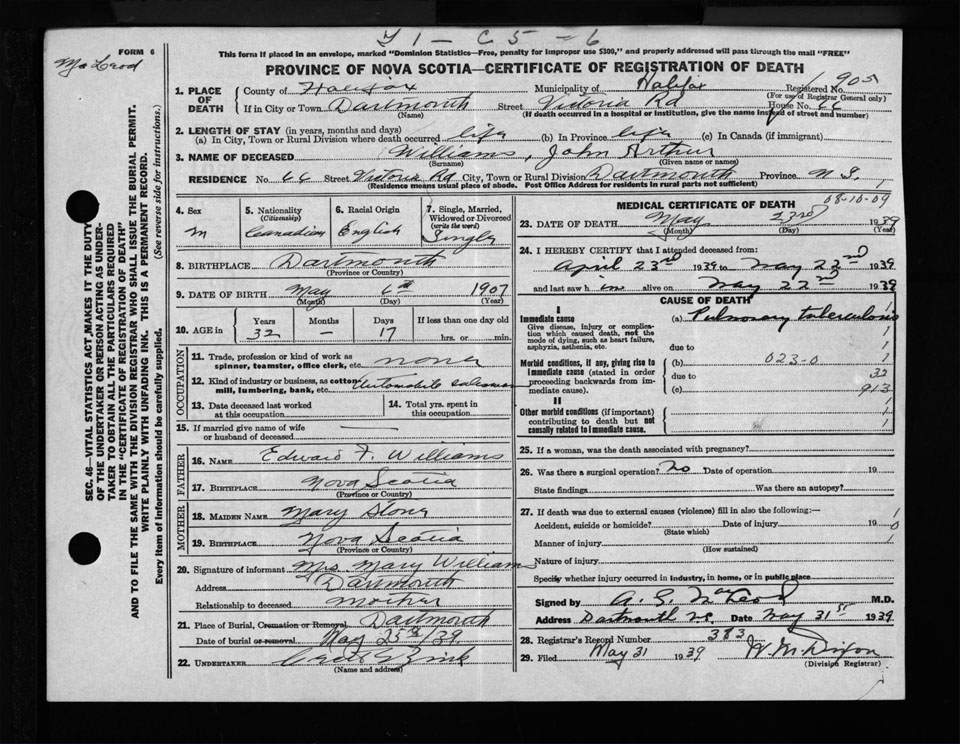 Y 1 - C 5 - 6
FORM 6
McLeod
This form if placed in an envelope, marked "Dominion Statistics—Free, penalty for improper use $300," and properly addressed will pass through the mail "FREE"
PROVINCE OF NOVA SCOTIA—CERTIFICATE OF REGISTRATION OF DEATH
SEC. 46—VITAL STATISTICS ACT MAKES IT THE DUTY
OF THE UNDERTAKER OR PERSON ACTING AS UNDER-
TAKER TO OBTAIN ALL THE PARTICULARS REQUIRED
IN THE "CERTIFICATE OF REGISTRATION OF DEATH"
AND TO FILE THE SAME WITH THE DIVISION REGISTRAR WHO SHALL ISSUE THE BURIAL PERMIT.
WRITE PLAINLY WITH UNFADING INK. THIS IS A PERMANENT RECORD.
Every item of information should be carefully supplied. (See reverse side for instructions.)
1. PLACE OF DEATH
County of Halifax Municipality of Halifax Registered No. 905
(For use of Registrar General only)
If in City or Town Dartmouth Street Victoria Rd House No. 66
(Name) (If death occurred in a hospital or institution, give the name instead of street and number)
2. LENGTH OF STAY (in years, months and days)
(a) In City, Town or Rural Division where death occurred life (b) In Province life (c) In Canada (if immigrant)
3. NAME OF DECEASED Williams, John Arthur
(Surname) (Given name or names)
RESIDENCE No. 66 Street Victoria Rd City, Town or Rural Division Dartmouth Province N.S.
(Residence means usual place of abode. Post Office Address for residents in rural parts not sufficient)
4. Sex M
5. Nationality (Citizenship) Canadian
6. Racial Origin English
7. Single, Married, Widowed or Divorced (write the word) Single
8. BIRTHPLACE Dartmouth
(Province or Country)
9. DATE OF BIRTH May 6th 1907
(Month) (Day) (Year)
10. AGE in Years 32 Months — Days 17 If less than one day old hrs. or min.
OCCUPATION
11. Trade, profession or kind of work as spinner, teamster, office clerk, etc. none
12. Kind of industry or business, as cotton mill, lumbering, bank, etc. Automobile salesman
13. Date deceased last worked at this occupation
14. Total yrs. spent in this occupation
15. If married give name of wife or husband of deceased —
FATHER
16. NAME Edward F. Williams
17. BIRTHPLACE Nova Scotia
(Province or Country)
MOTHER
18. MAIDEN NAME Mary Stone
19. BIRTHPLACE Nova Scotia
(Province or Country)
20. Signature of informant Mrs. Mary Williams
Address Dartmouth
Relationship to deceased mother
21. Place of Burial, Cremation or Removal Dartmouth
Date of burial or removal May 25th/39
22. UNDERTAKER Zink
(Name and address)
MEDICAL CERTIFICATE OF DEATH 08-10-09
23. DATE OF DEATH May 23rd 1939
(Month) (Day) (Year)
24. I HEREBY CERTIFY that I attended deceased from:
April 23rd 1939 to May 22nd 1939
and last saw him alive on May 22nd 1939
CAUSE OF DEATH
I
Immediate cause (a) Pulmonary tuberculosis
Give disease, injury or complication which caused death, not the mode of dying, such as heart failure, asphyxia, asthenia, etc.
due to
Morbid conditions, if any, giving rise to immediate cause (stated in order proceeding backwards from immediate cause). (b) 023-0
due to 32
(c) 913
II
Other morbid conditions (if important) contributing to death but not causally related to immediate cause.
25. If a woman, was the death associated with pregnancy?
26. Was there a surgical operation? No Date of operation 19
State findings Was there an autopsy?
27. If death was due to external causes (violence) fill in also the following:—
Accident, suicide or homicide? Date of injury 19
(State which)
Manner of injury
(How sustained)
Nature of injury
Specify whether injury occurred in industry, in home, or in public place
Signed by A. S. MacLeod M.D.
Address Dartmouth N.S. Date May 31st 1939
28. Registrar's Record Number 383
29. Filed May 31 1939 W. M. Dixon
(Division Registrar)